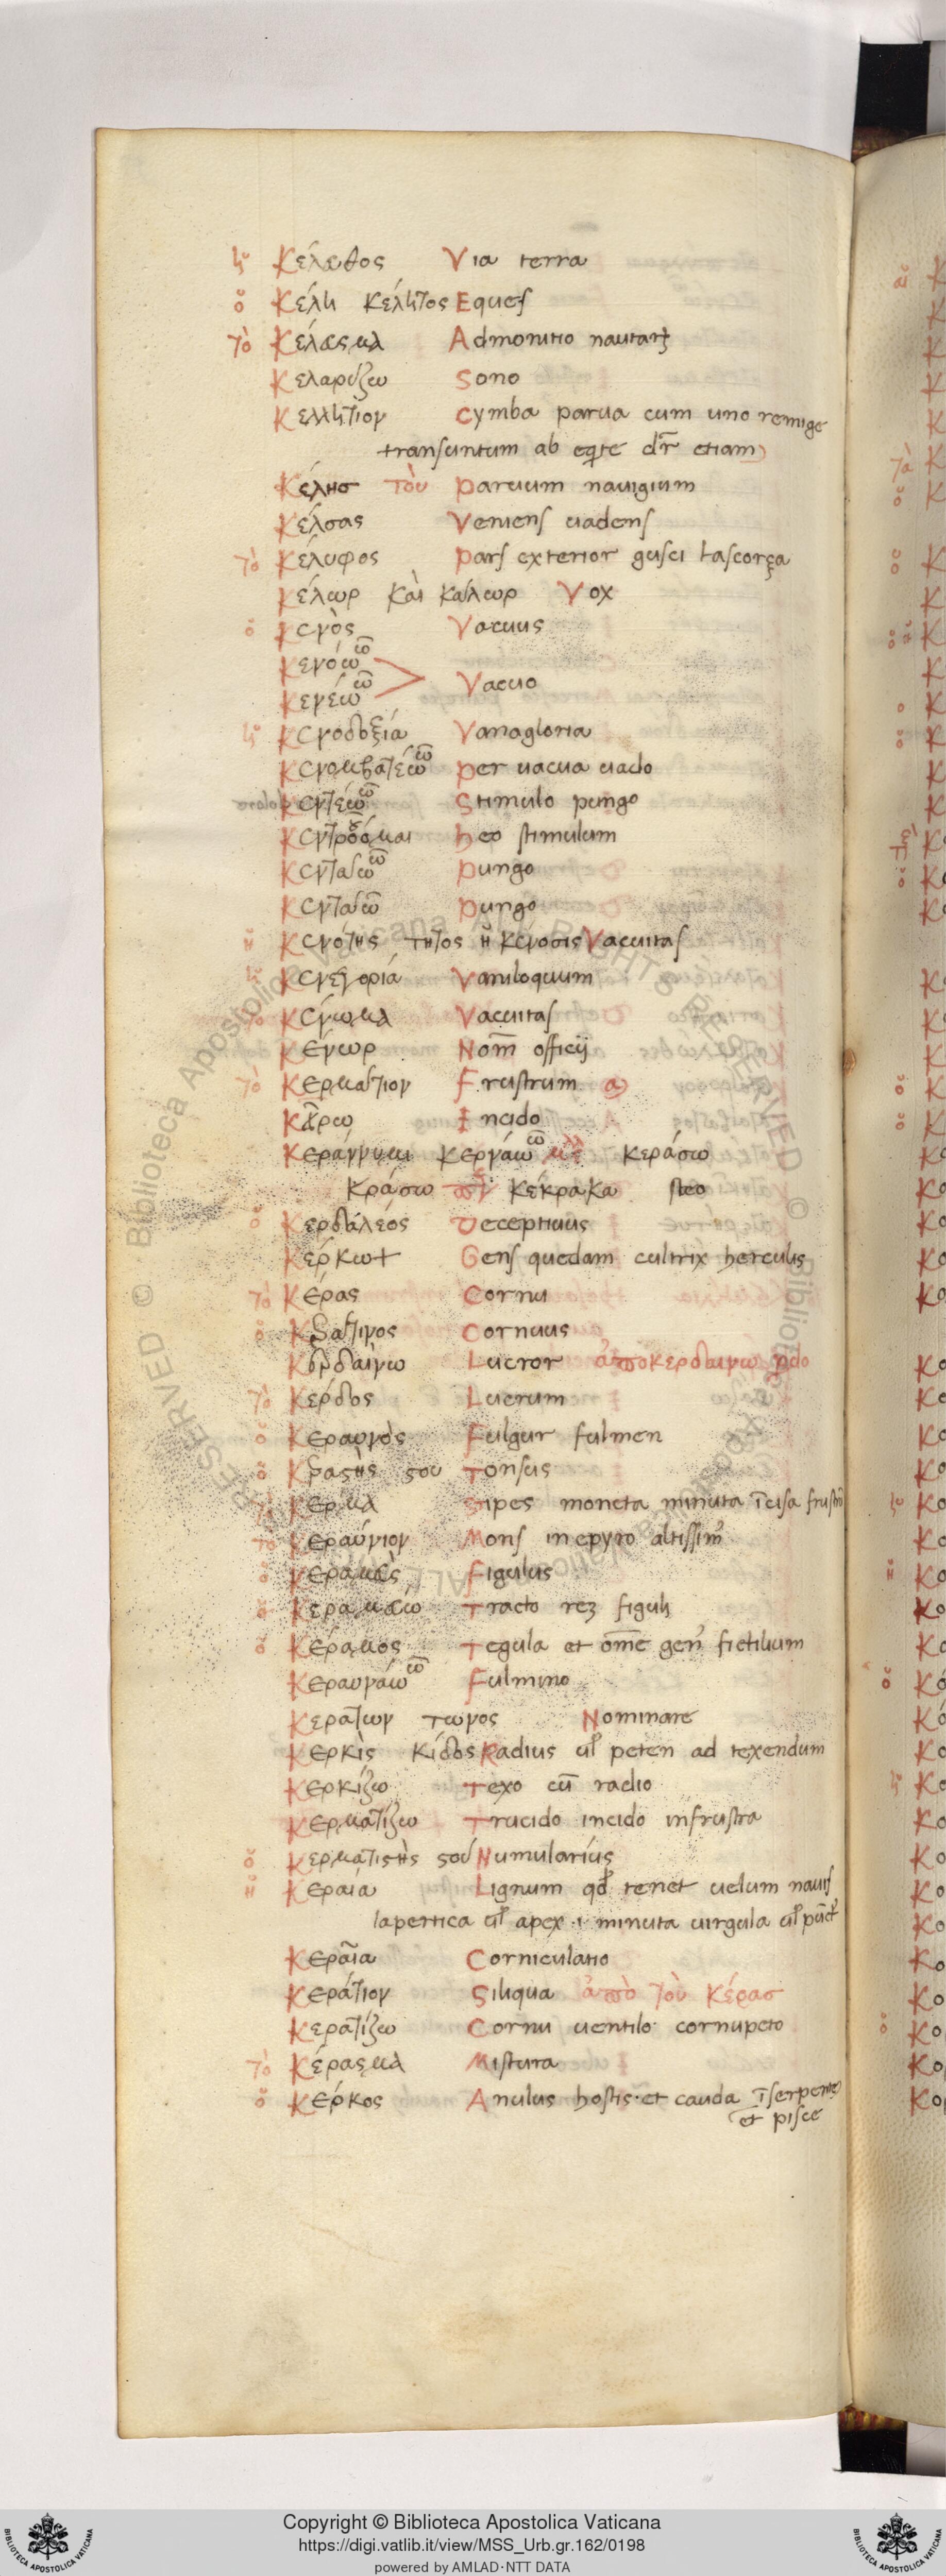 ἡ Κέλευθος Via terra
ὁ Κέλη κέλητος Eques
τὸ Κέλευσμα Admonitio nautarꝝ
Κελαρύζω Sono
Κελλήτιον Cymba parua cum uno remige
transuntum ab eqite dr̄ etiam
Κέλησ τὸυ paruum nauigium
Κέλσας Veniens uadens
τὸ Κέλυφος pars exterior gusci lascorça
Κέλωρ καὶ καίλωρ Vox
ὁ Κενὸς Vacuus
Κενόω ῶ
Κενέω ῶ Vacuo
ἡ Κενοδοξία Vanagloria
Κενομβατέω ῶ per uacua uado
Κεντέω ῶ Stimulo pungo
Κεντρόομαι heo stimulum
Κενταίω ῶ pungo
Κενταίω pungo
ἡ Κενότης τητος ἢ κένοσις Vacuitas
ἡ Κενεγορία Vaniloquum
τὸ Κένωμα Vacuitas
Κένωρ Nom̄ officij
τὸ Κερμάτιον Frustrum
Incido
Κεράννυμι κερνάω ῶ κεράσω
κράσω κέκρακα
ὁ Κερδάλεός Deceptiuus
Κέρκωψ Gens quedam cultrix herculis
τὸ Κέρας Cornu
ὁ Κεράτινος Cornuus
Κερδαίνω Lucror ἀποκερδαινω
τὸ Κέρδος Lucrum
ὁ Κεραυνὸς Fulgur fulmen
ὁ Κεραστὴς στου Tonsus
τὸ Κέρμα Stipes moneta minuta ī́cisa
τὸ Κεραύνιον Mons in epyro altissim᾽
ὁ Κεραμεὺς Figulus
Κεραμεύω Tracto reʒ figuli
ὁ Κέραμος Tegula et om̄e gen᾽ fictilium
Κεραυνάω ῶ Fulmino
Κεράτων τωνος Nominare
Κερκὶς κίδος Radius ul̓ peten ad texendum
Κερκίζω Texo cū radio
Κερματίζω Trucido incido infrustra
ὁ Κερματιστὴς στοῦ Numularíus
ἡ Κεραία Lignum qd̓ tenet uelum nauis
lapertica ul̓ apex .i. minuta uirgula ul̓ pūct᾽
Κεραῖα Corniculatio
Κεράτιον Siliqua ἀπὸ τὸυ κέρασ
Κερατίζω Cornu uentilo cornupeto
τὸ Κέρασμα Mistura
ὁ Κέρκος Anulus hostis·et cauda ī serpente
et pisce
Copyright © Biblioteca Apostolica Vaticana
https://digi.vatlib.it/view/MSS_Urb.gr.162/0198
powered by AMLAD·NTT DATA